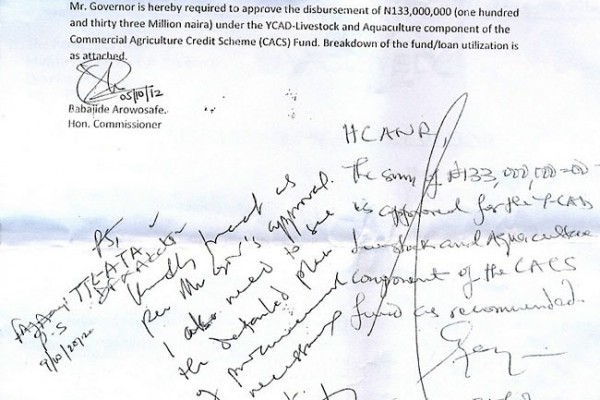 Mr. Governor is hereby required to approve the disbursement of N133,000,000 (one hundred
and thirty three Million naira) under the YCAD-Livestock and Aquaculture component of the
Commercial Agriculture Credit Scheme (CACS) Fund. Breakdown of the fund/loan utilization is
as attached.
05/10/12
Babajide Arowosafe.
Hon. Commissioner
HCANR,
The sum of ₦133,000,000=00
is approved for the Y-CAD
Livestock and Aquaculture
component of the CACS
fund as recommended.
PS,
Kindly treat as
per Mr Gov's approval.
I also need to see
the detailed plan
of procurement
necessary
P.S
9/10/2012